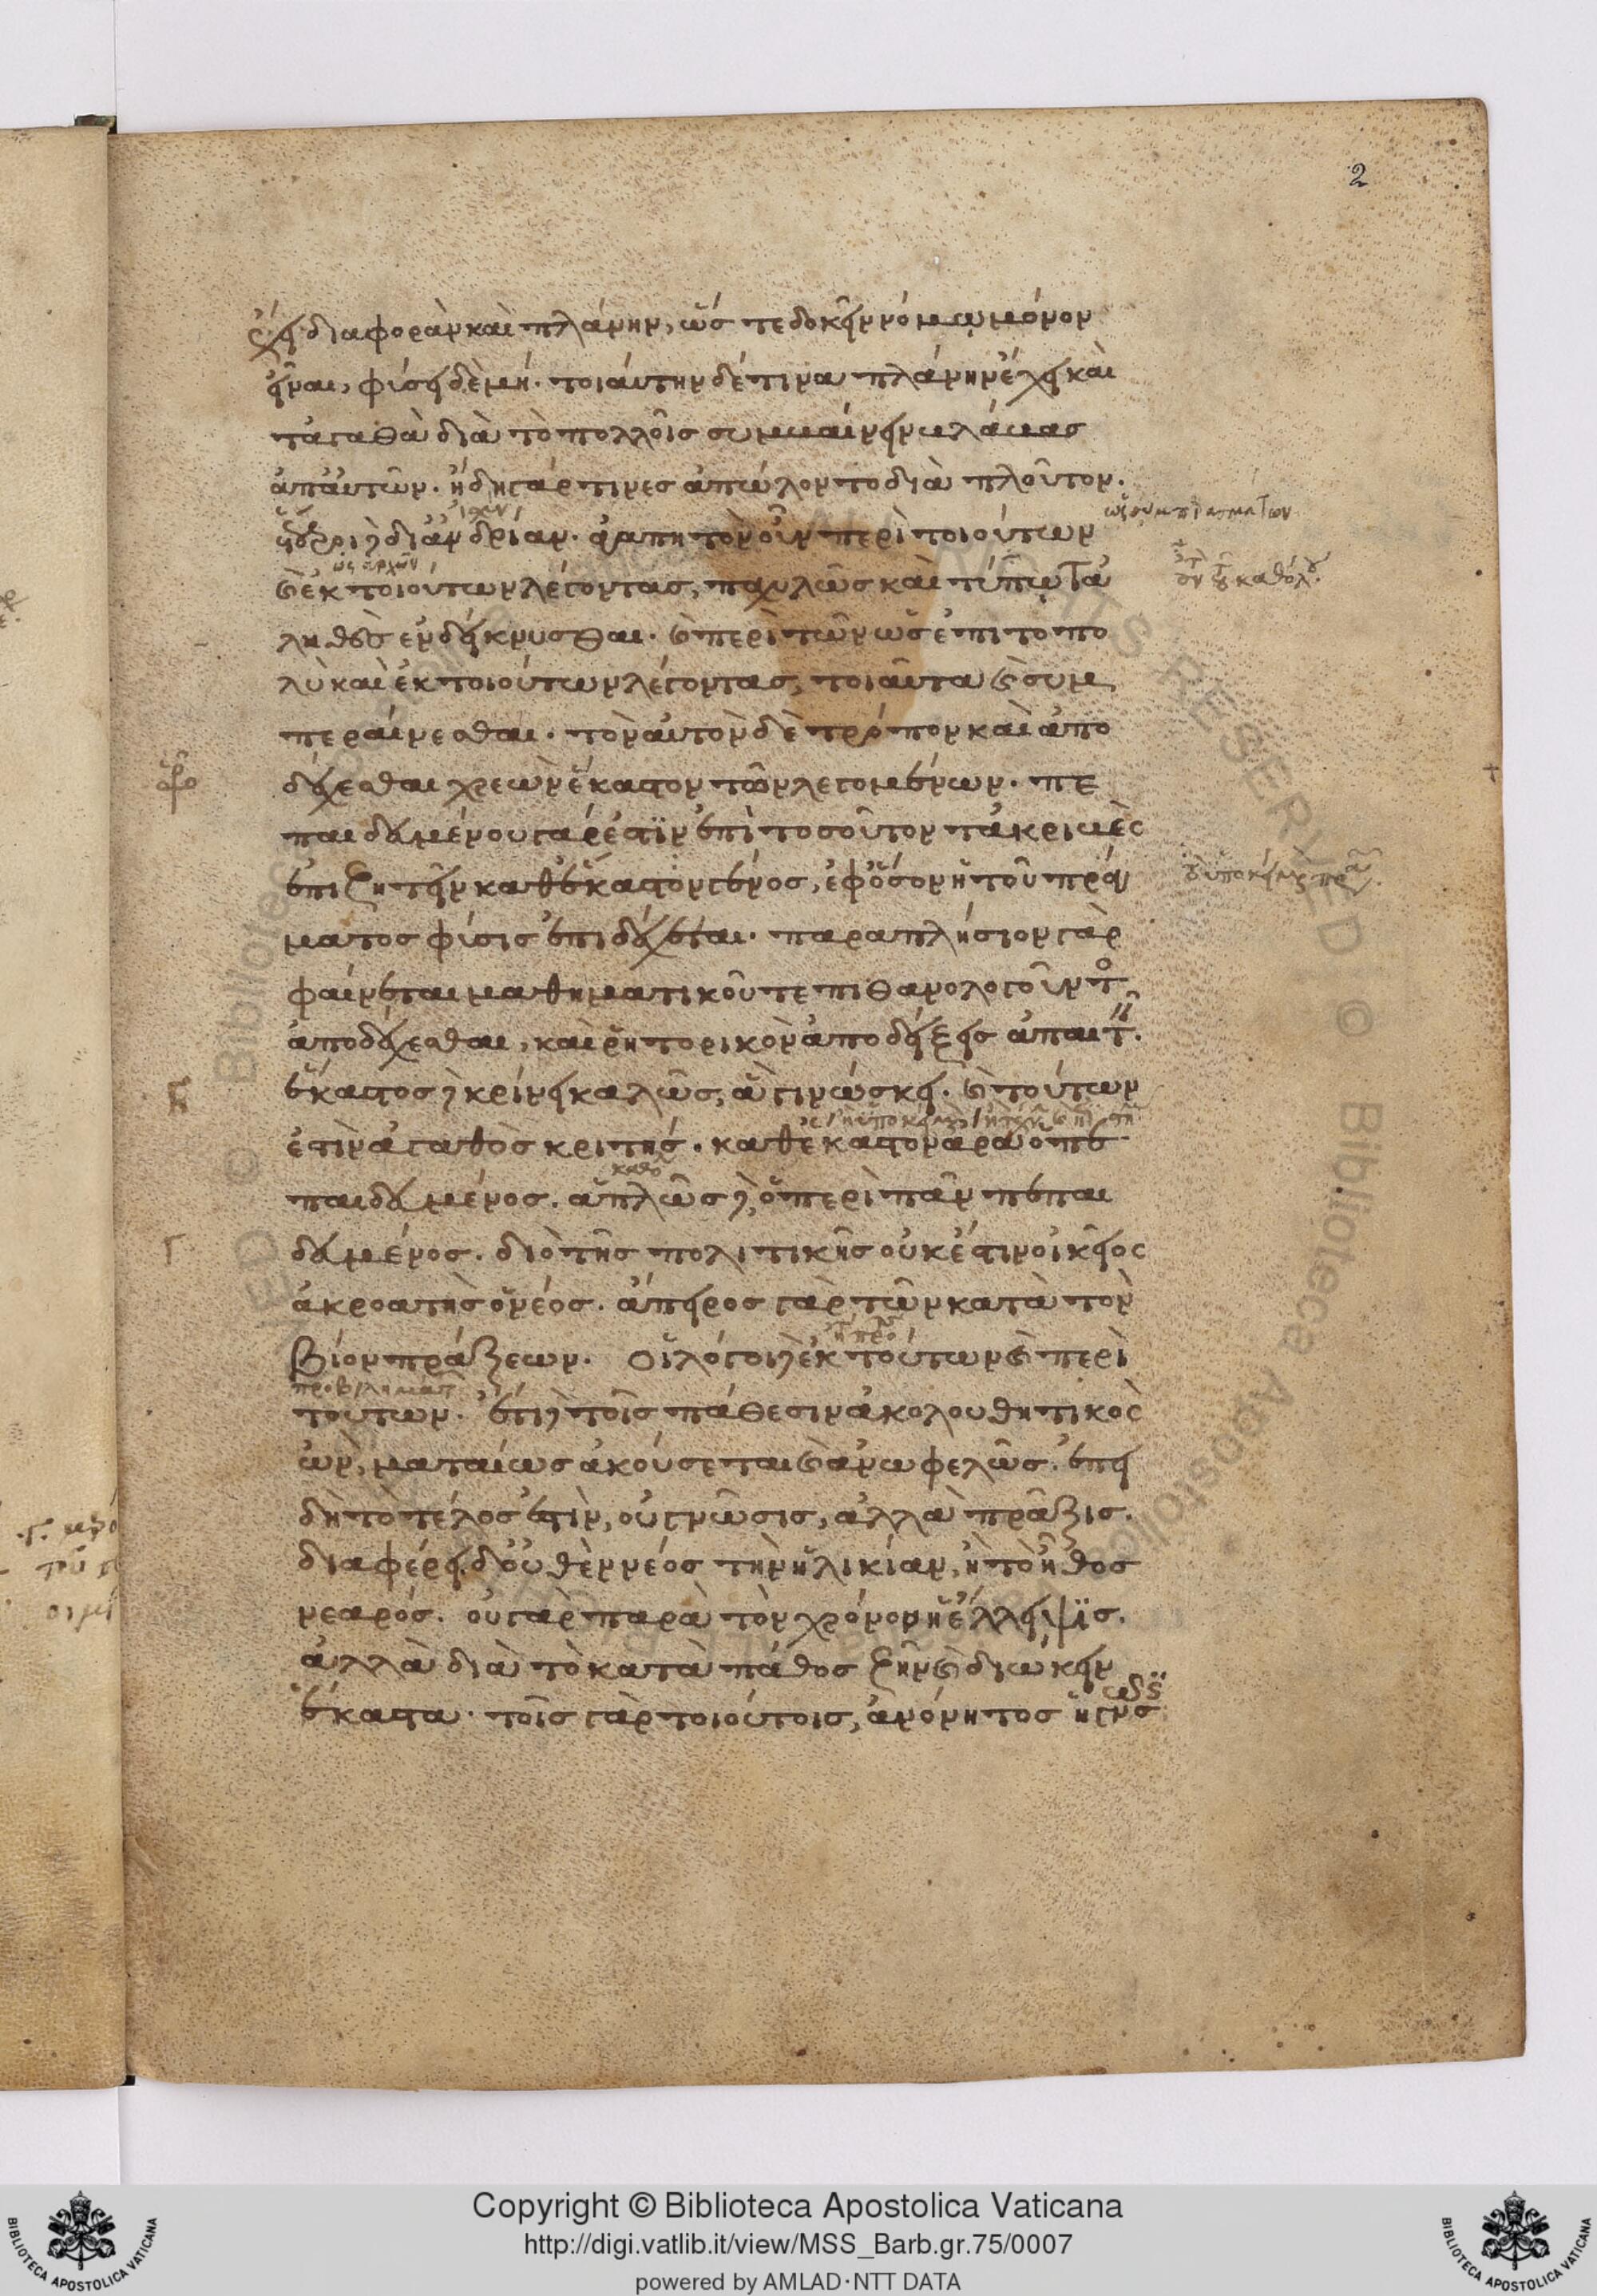 2
ἔχει διαφορὰν καὶ πλάνην, ὥστε δοκεῖν νόμω μόνον
εἶναι, φύσει δὲ μή. τοιαύτην δέ τινα πλάνην ἔχει καὶ
τἀγαθὰ διὰ τὸ πολλοῖς συμβαίνειν βλάβας
ἀπ' αὐτῶν. ἤδη γάρ τινες ἀπώλοντο διὰ πλοῦτον.
ἕτεροι δὲ δι' ἀνδρίαν. ἀγαπητὸν οὖν περὶ τοιούτων
καὶ ἐκ τοιούτων λέγοντας, παχυλῶς καὶ τύπω τἀ
ληθὲς ἐνδείκνυσθαι. καὶ περὶ τῶν ὡς ἐπι το πο
λὺ καὶ ἐκ τοιούτων λέγοντας, τοιαῦτα καὶ συμ
περαίνεσθαι. τὸν αὐτὸν δὲ τρόπον καὶ ἀπο
δέχεσθαι χρεὼν ἕκαστον τῶν λεγομένων. πε
παιδευμένου γάρ ἐστϊν ἐπὶ τοσοῦτον τἀκριβὲς
ἐπιζητεῖν καθ' ἕκαστον γένος, ἐφ' ὅσον ἡ τοῦ πράγ
ματος φύσις ἐπιδέχεται. παραπλήσιον γὰρ
φαίνεται μαθηματικοῦ τε πιθανολογοῦντο
ἀποδέχεσθαι, καὶ ῥητορικὸν ἀποδείξεις ἀπαιτ.
ἕκαστος δὲ κρίνει καλῶς, ἃ γινώσκει. καὶ τούτων
ἐστὶν ἀγαθὸς κριτής. καθ' ἕκαστον ἄρα ὁ πε
παιδευμένος. ἁπλῶς δὲ, ὁ περὶ πᾶν πεπαι
δευμένος. διὸ τῆς πολιτικῆς οὐκ ἔστιν οἰκεῖος
ἀκροατὴς ὁ νέος. ἄπειρος γὰρ τῶν κατὰ τὸν
βίον πράξεων. οἱ λόγοι δὲ ἐκ τούτων καὶ περὶ
τούτων. ἔτι δὲ τοῖς πάθεσιν ἀκολουθητικὸς
ὢν, ματαίως ἀκούσεται καὶ ἀνωφελῶς. ἐπει
δὴ τὸ τέλος ἐστὶν, οὐ γνῶσις, ἀλλὰ πρᾶξις.
διαφέρει δ' οὐθὲν νέος τὴν ἡλικίαν, ἢ τὸ ἦθος
νεαρός. οὐ γὰρ παρὰ τὸν χρόνον ἡ ἔλλειψϊς.
ἀλλὰ διὰ τὸ κατὰ πάθος ζῆν καὶ διώκειν
ἕκαστα. τοῖς γὰρ τοιούτοις, ἀνόνητος ἡ γνῶσ
Copyright © Biblioteca Apostolica Vaticana
http://digi.vatlib.it/view/MSS_Barb.gr.75/0007
powered by AMLAD·NTT DATA
BIBLIOTECA APOSTOLICA VATICANA
BIBLIOTECA APOSTOLICA VATICANA